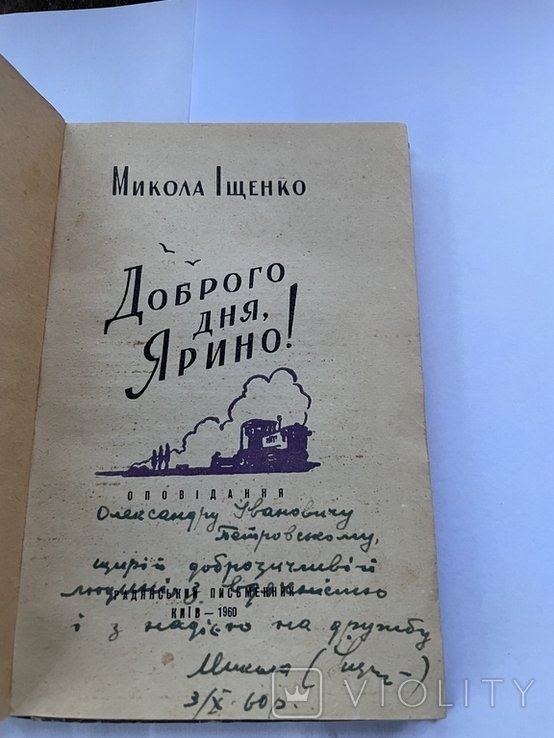 Микола Іщенко
Доброго
дня,
Ярино!
ОПОВІДАННЯ
Олександру Івановичу
Петровському,
щирій доброзичливій
людині з вдячністю
РАДЯНСЬКИЙ ПИСЬМЕННИК
КИЇВ — 1960
і з надією на дружбу
Микола
3/X 60 р.
VIOLITY